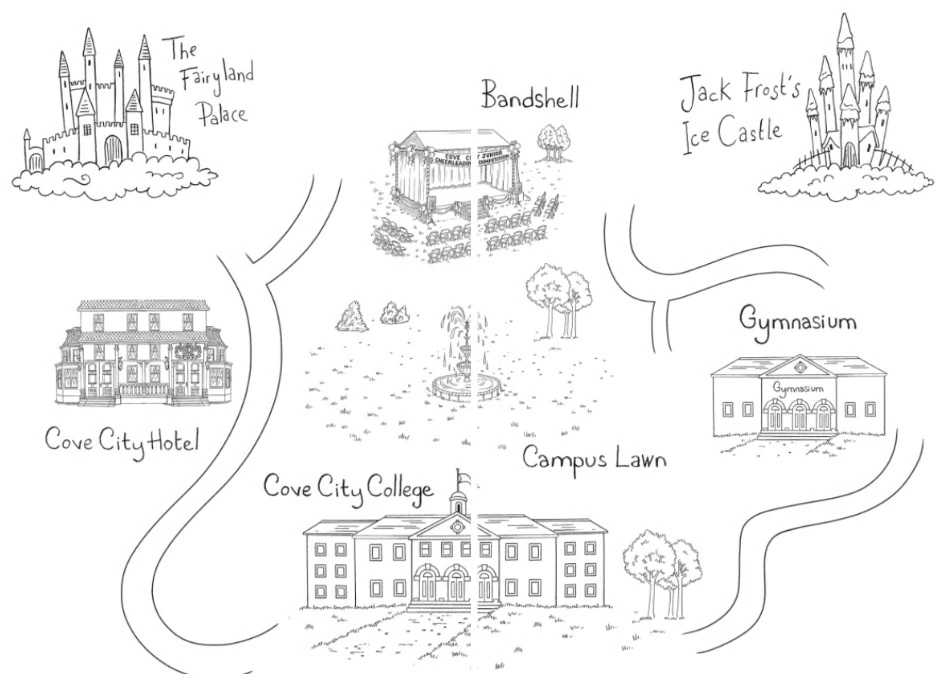 The
Fairyland
Palace
Bandshell
COVE CITY JUNIOR
CHEERLEADING COMPETITION
Jack Frost's
Ice Castle
Cove City Hotel
Gymnasium
Gymnasium
Campus Lawn
Cove City College